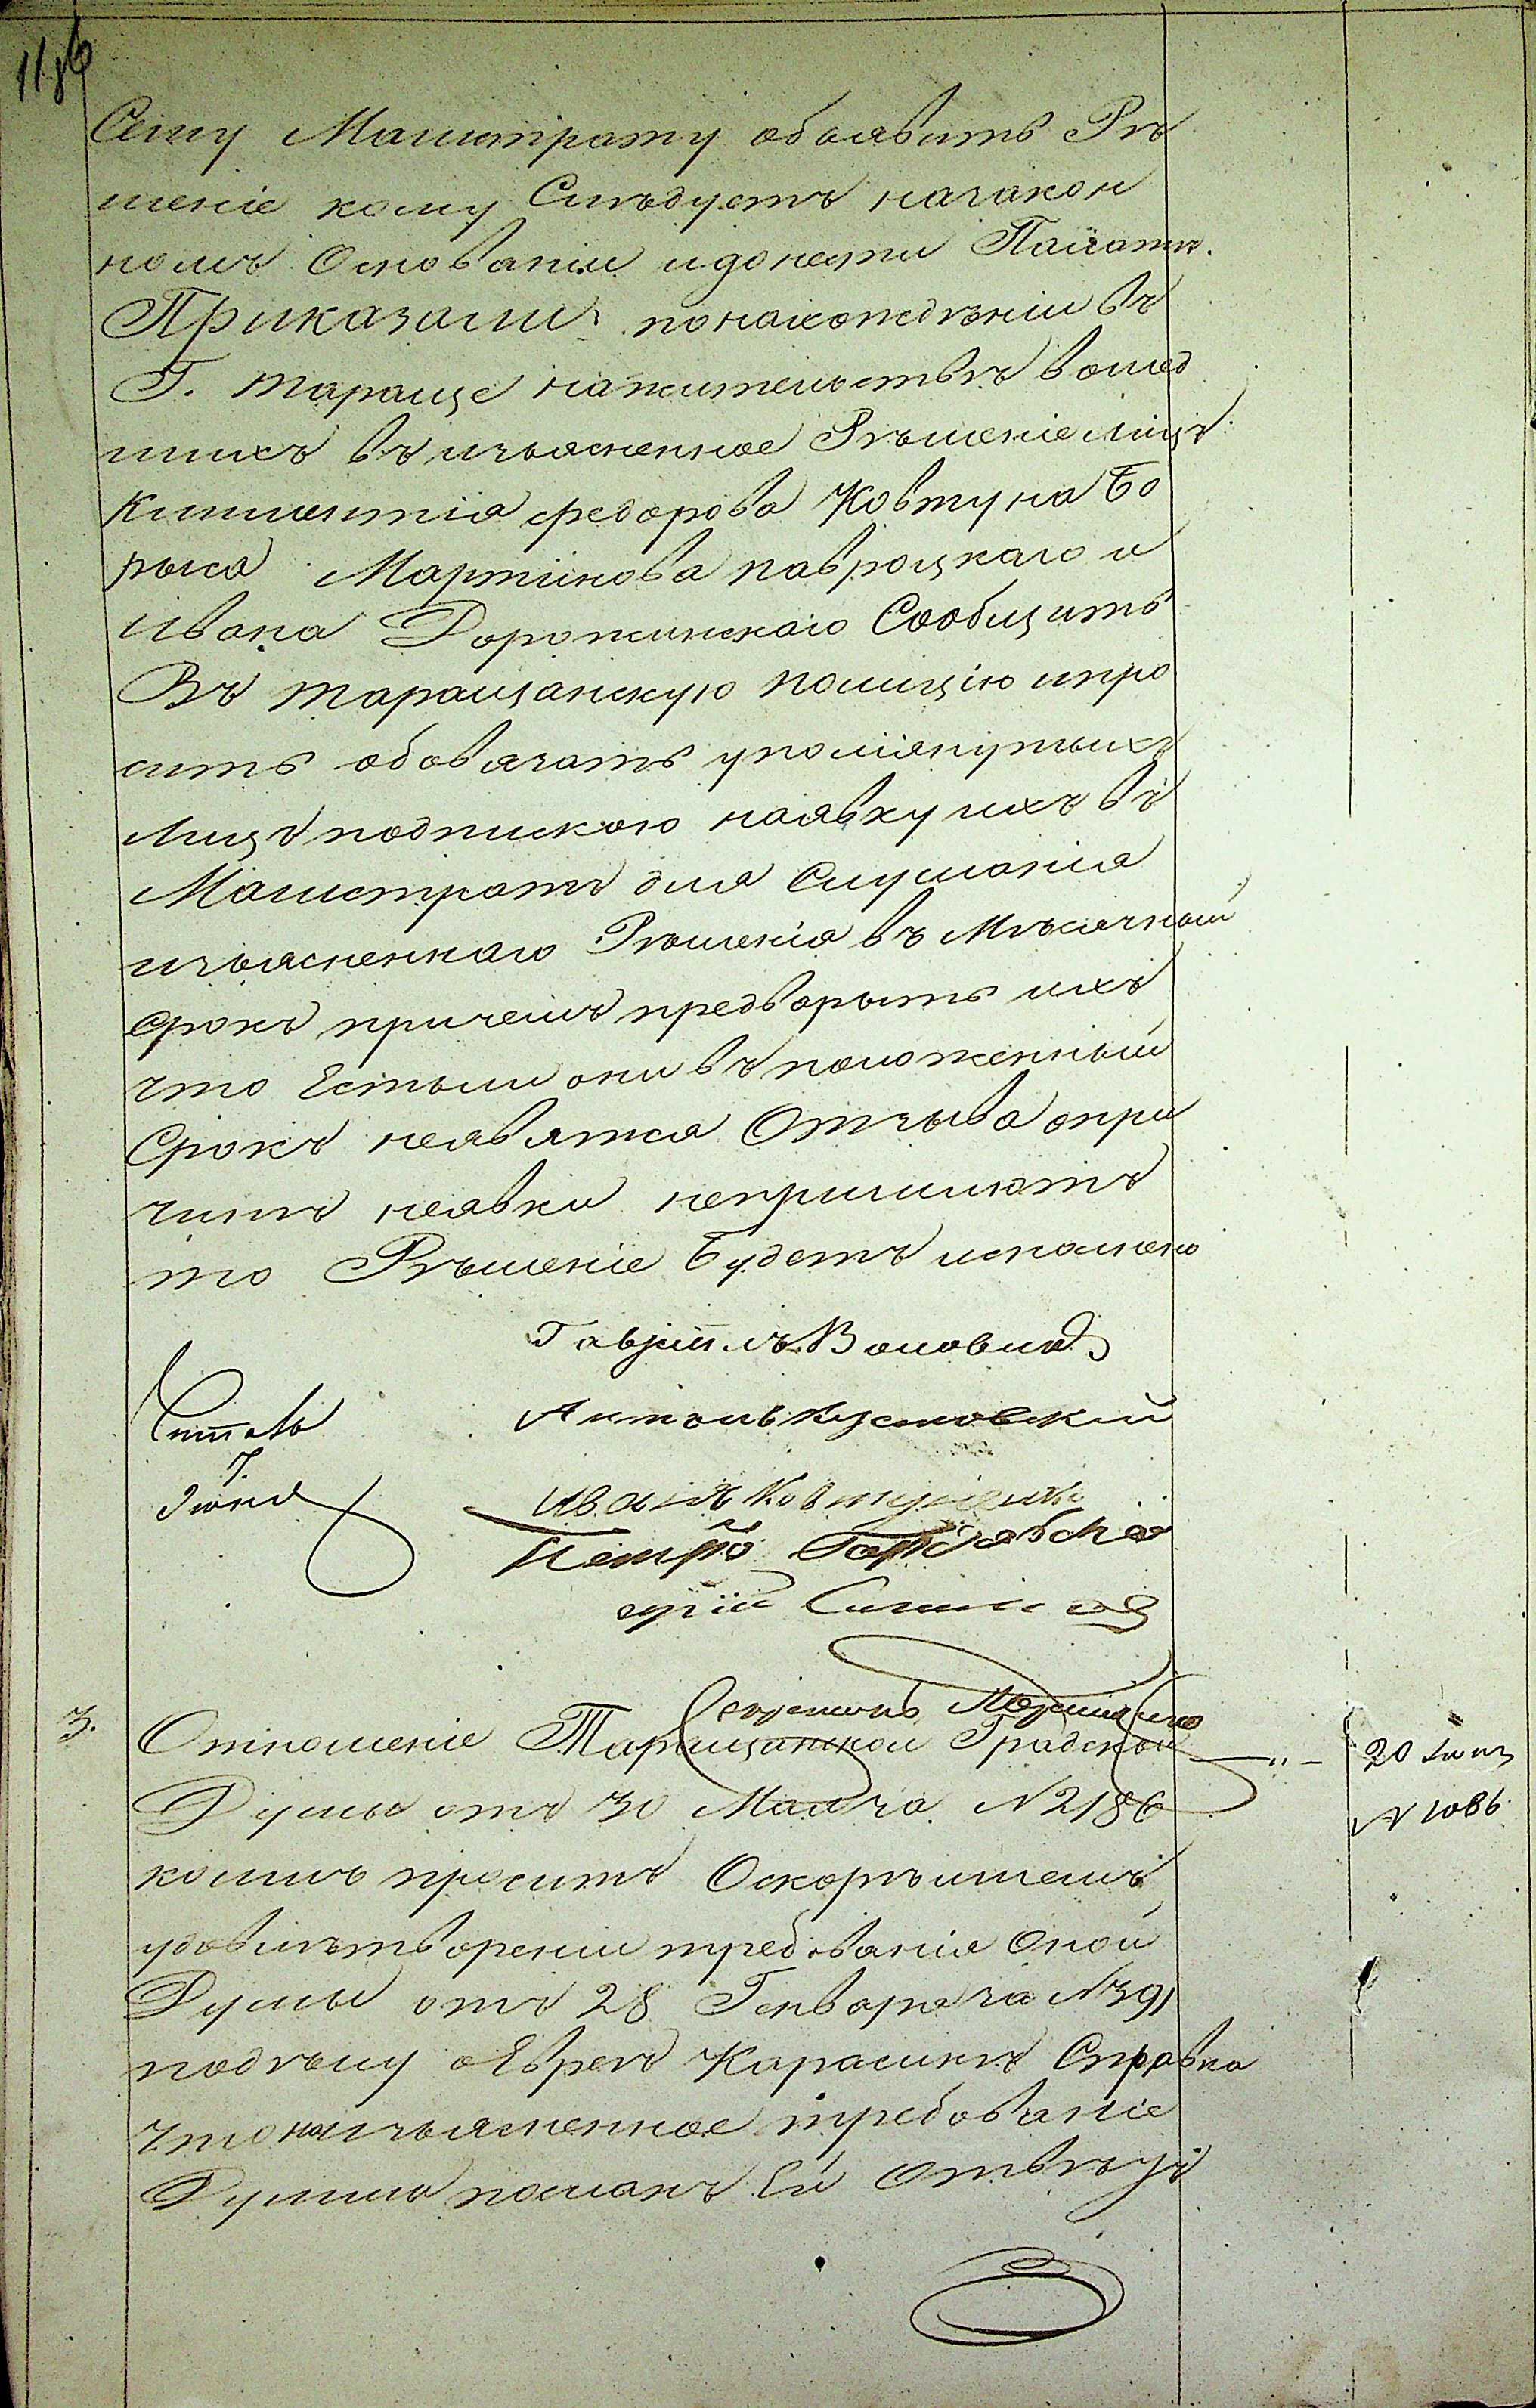 1186
Сему Магистрату объявить Рѣ
шеніе кому Слѣдуетъ назакон
номъ Основаніи идонести Палатѣ.
Приказали: понахожденіи въ
Г. Тараще нажительствѣ вошед
шихъ въ изъясненное Рѣшеніе лицъ:
Климентія Федорова Ковтуна Бо
рыса Мартинова Навроцкаго и
Ивана Дорожинскаго Сообщить
Въ Таращанскую полицію ипро
сить обовязать упомянутыхъ
лицъ подпискою наявку ихъ въ
Магистратъ для Слушанія
изъясненнаго Рѣшенія въ Мѣсячный
срокъ причемъ предворыть ихъ
что Естьли они въ положенный
Срокъ неявятся Отзыва опри
чинѣ неявки непришлютъ
то Рѣшеніе будетъ исполнено
Гавріилъ
Антонъ
Читалъ
7.
Іюня
Иванъ Ковтуненко
Петръ
Секретарь
3.
Отношеніе Таращанской Градской
20 Іюня
Думы отъ 30 Мая за № 2186
№ 1086
коимъ проситъ Оскорѣйшемъ
удовлѣтвореніи требованія Оной
Думы отъ 28 Генваря за № 391
подѣлу оЕвреѣ Карасикѣ Справка
что на изъясненное требованіе
Думы посланъ Ей Отвѣтъ